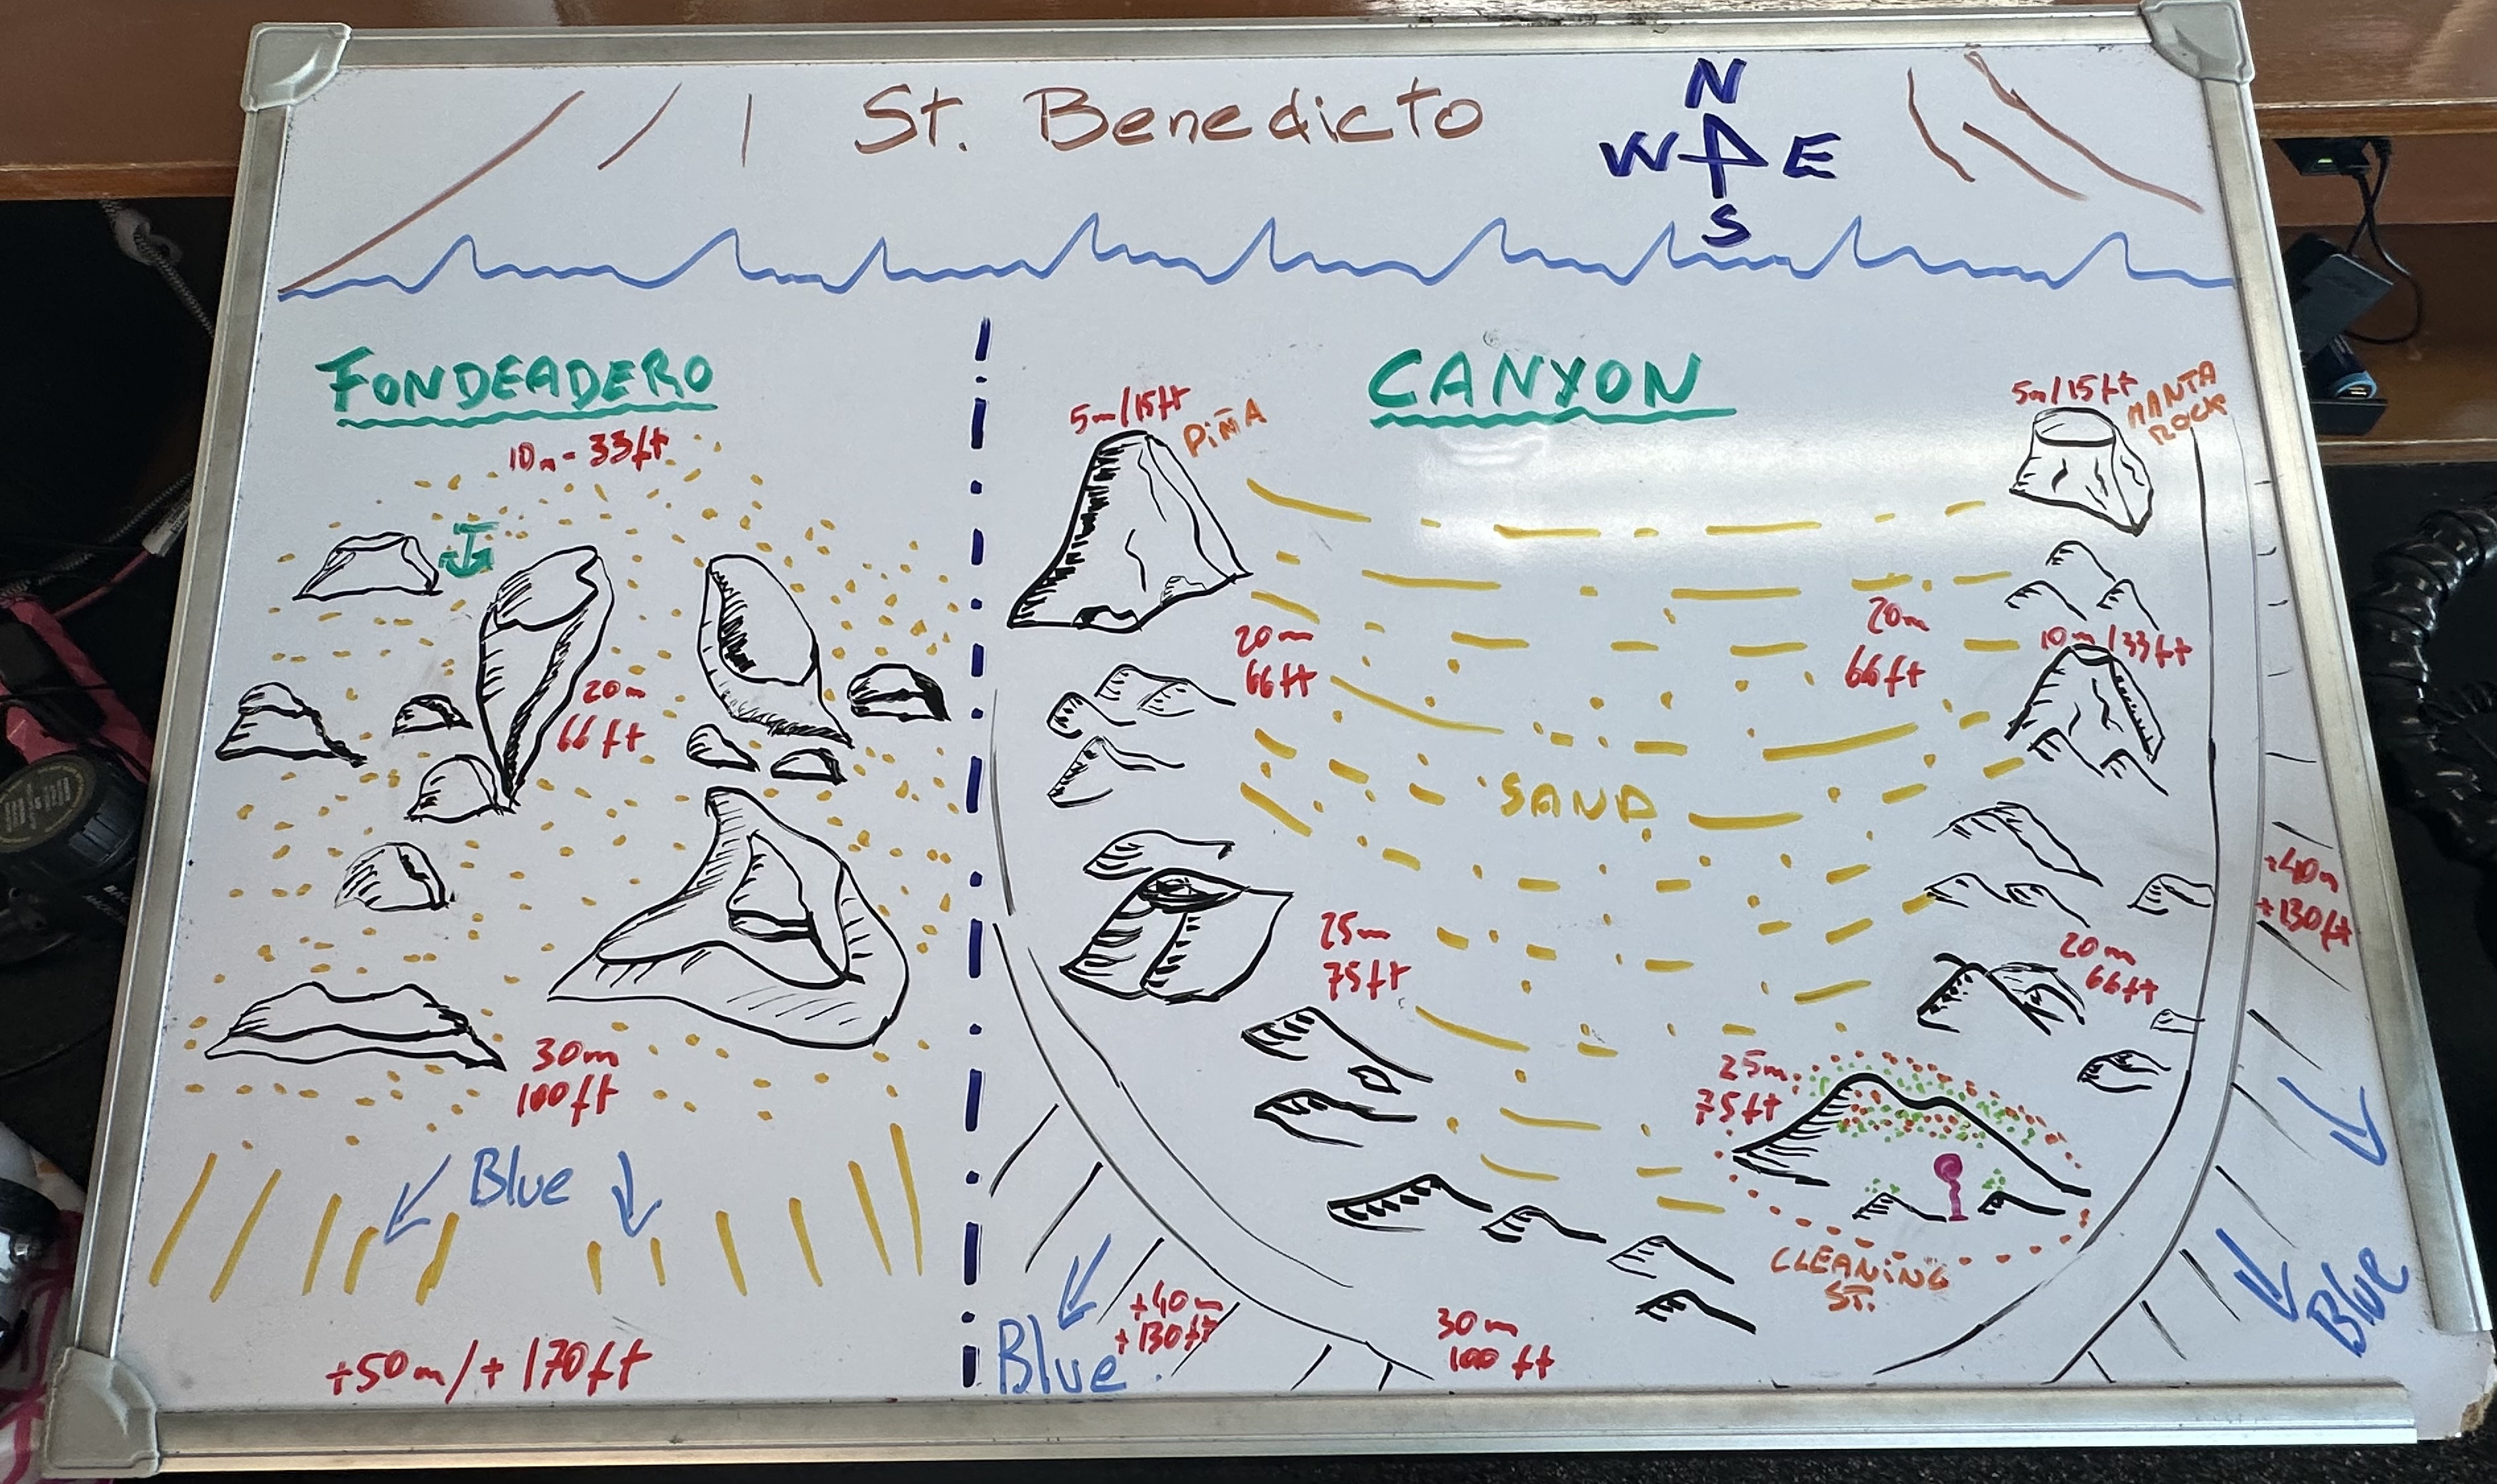 St. Benedicto
N
W E
S
FONDEADERO
10m - 33ft
20m
66ft
30m
100ft
Blue
+50m/+170ft
CANYON
5m/15ft
PIÑA
5m/15ft
MANTA
ROCK
20m
66ft
20m
66ft
10m/33ft
SAND
+40m
+130ft
25m
75ft
20m
66ft
25m
75ft
CLEANING
ST.
+40m
+130ft
Blue
30m
100ft
Blue